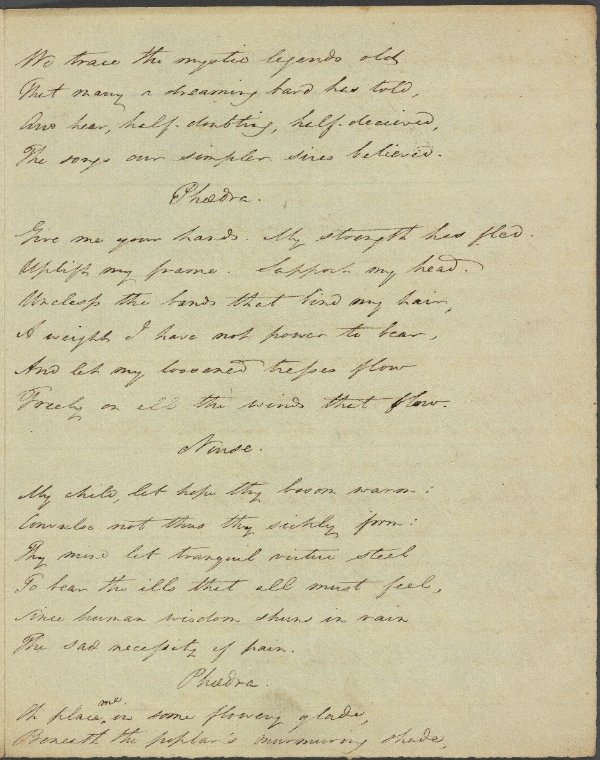 We trace the mystic legends old
That many a dreaming bard has told,
And hear, half-doubting, half-decieved,
The songs our simpler sires believed.
Phædra.
Give me your hands. My strength has fled.
Uplift my frame. Support my head.
Unclasp the bands that bind my hair,
A weight I have not power to bear,
And let my loosened tresses flow
Freely on all the winds that blow.
Nurse.
My child, let hope thy bosom warm:
Convulse not thus thy sickly form:
Thy mind let tranquil virtue steel
To bear the ills that all must feel,
Since human wisdom shuns in vain
The sad necessity of pain.
Phædra.
Oh place me in some flowery glade,
Beneath the poplar's murmuring shade,